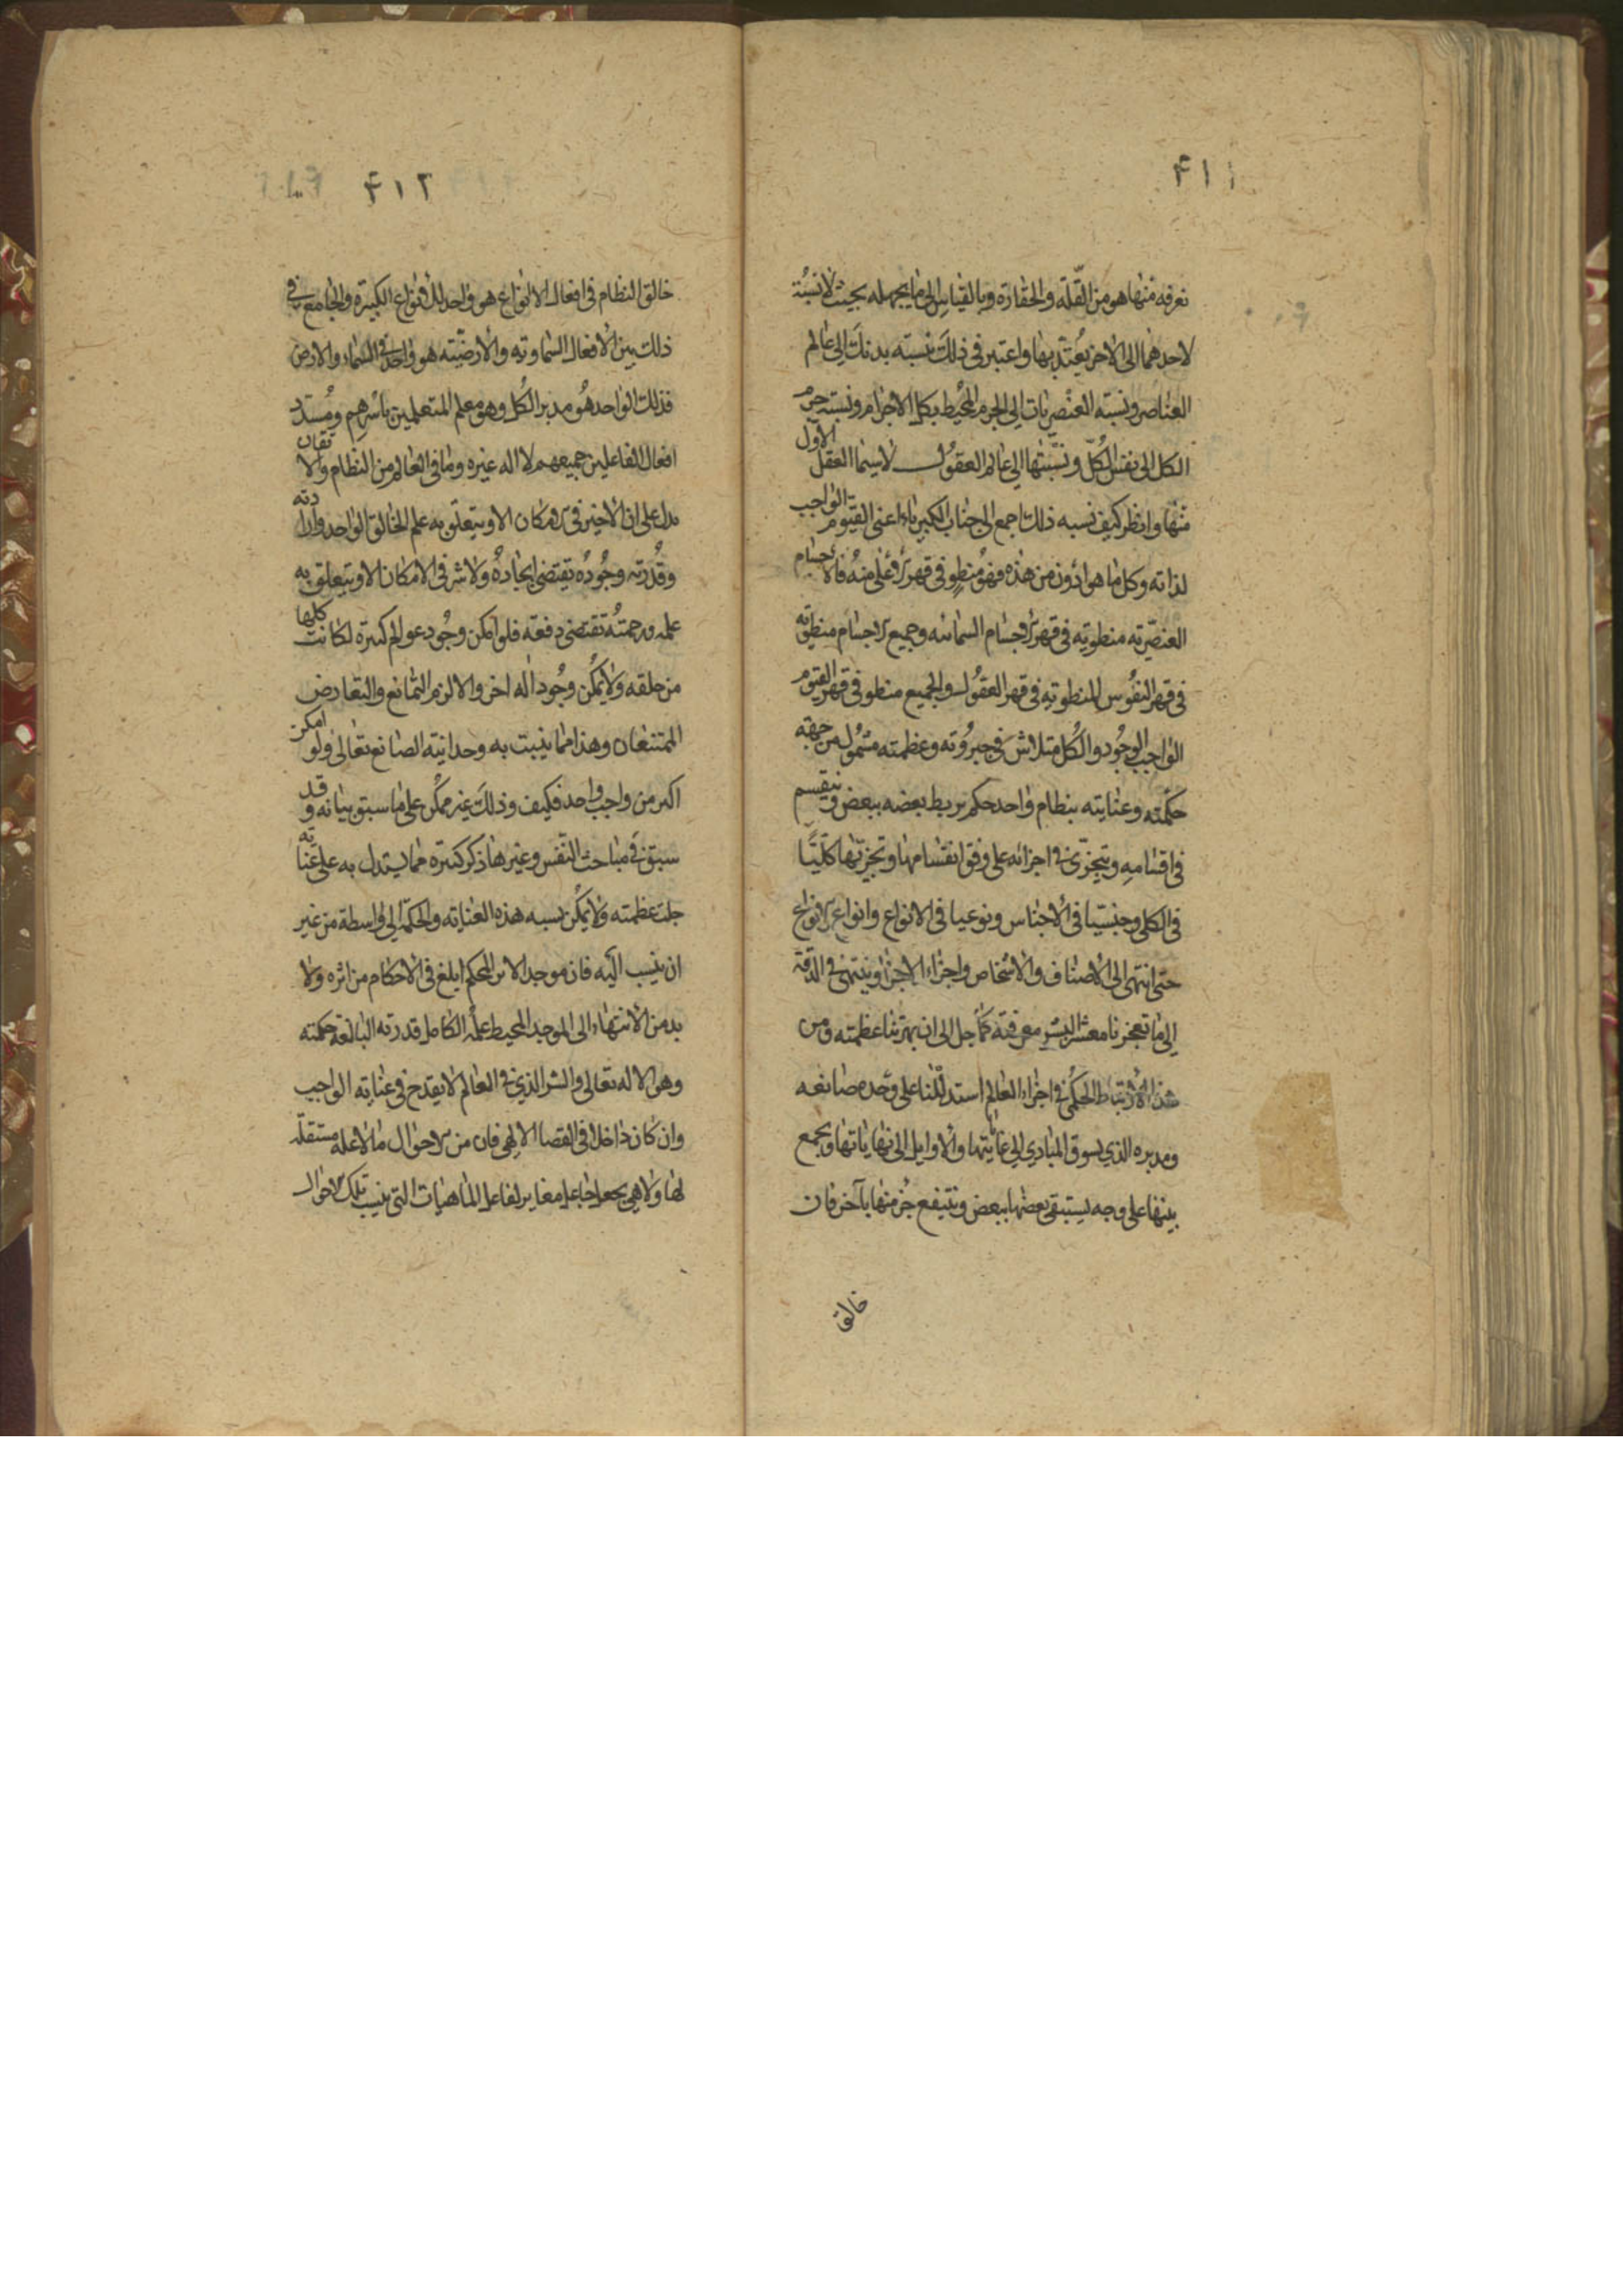 ۴۱۱
نعرفه منها هو من القلّة والحقارة وبالقياس الى ما يجهله بحيث لا نسبة
لاحدهما الى الاخر يعتد بها واعتبر فى ذلك نسبته بدنك الى عالم
العناصر ونسبة العنصريات الى الجرم المحيط بكل الاجرام ونسبة جرم
الكل الى نفس الكلّ ونسبتها الى عالم العقول لا سيما العقل الأول
منها وانظر كيف نسبه ذلك اجمع الى جناب الكبرياء اعنى القيوم الواجب
لذاته وكل ما هو ادون من هذه فهو منطوٍ فى قهر الاعلى منه فالاجسام
العنصريّة منطوية فى قهر الاجسام السمائيه وجميع الاجسام منطوية
فى قهر النفوس المنطوية فى قهر العقول والجميع منطو فى قهر القيوم
الواجب الوجود والكل متلاش فى جبروته وعظمته مشمول من جهة
حكمته وعنايته بنظام واحد حكم يربط بعضه ببعض وينقسم
فى اقسامه ويتجزّى فى اجزائه على وفق انقسامها وتجزيّها كليّا
فى الكلى وجنسيا فى الأجناس ونوعيا فى الانواع وانواع الانواع
حتى انتهى الى الاصناف والاشخاص واجزاء الاجزا وينتهى فى الدقة
الى ما تعجزنا معشر البشر معرفته كما جل الى ان بهرتنا عظمته ومن
هذا الأرتباط الحكمى فى اجزاء العالم استدللنا على وحده صانعه
ومدبره الذي يسوق المبادي الى غاياتها والأوايل الى نهاياتها ويجمع
بينها على وجه يستبقى بعضها ببعض وينتفع جُز منها بآخر فان
خالق
۴۱۲
خالق النظام فى افعال الانواع هو واحد لك الانواع الكبيرة والجامع فى
ذلك بين الأفعال السماوية والأرضيّة هو واحد فى السماء والارض
فذلك الواحد هو مدبر الكل وهو معلم المتعلمين باسرهم ومسدد
افعال الفاعلين جميعهم لا اله غيره وما فى العالم من النظام والاتقان
يدل على ان لاخير فى الامكان الا ويتعلق به علم الخالق الواحد وارادته
وقدرته وجُوده يقتضى ايجاده ولا شر فى الامكان الا ويتعلق به
علمه ورحمته تقتضى دفعه فلو امكن وجُود عوالم كثيرة لكانت كلها
من خلقه ولا يمكن وجُود اله اخر والا لزم التمانع والتعارض
الممتنعان وهذا مما يثبت به وحدانية الصانع تعالى ولو امكن
اكثر من واجب واحد فكيف وذلك غير ممكن على ما سبق بيانه وقد
سبق فى مباحث النفس وغيرها ذكر كثيرة مما يستدل به على عنايته
جلت عظمته ولا يمكن نسبه هذه العناية والحكمة الى واسطة من غير
ان ينسب اليه فان موجد الاثر المحكم ابلغ فى الأحكام من اثره ولا
بد من الأنتهاء الى الموجد المحيط علمه الكامل قدرته البالغة حكمته
وهو الاله تعالى والشر الذي فى العالم لا يقدح فى عناية الواجب
وان كان داخلا فى القضا الالهى فان من الاحوال ما لا علة مستقلّه
لها ولا هى بجعل جاعل مغاير لفاعل الماهيات التى ينسب تلك الاحوال